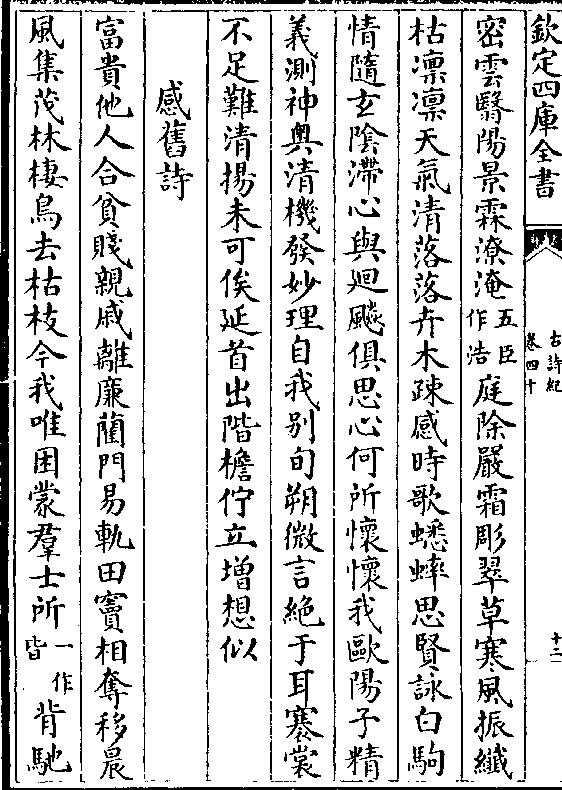 欽定四庫全書
古詩紀
卷四十
十二
密雲翳陽景霖潦淹五臣作浩庭除嚴霜彫翠草寒風振纖
枯凛凛天氣清落落卉木疎感時歌蟋蟀思賢詠白駒
情隨玄陰滯心與迴飇俱思心何所懷懷我歐陽子精
義測神奥清機發妙理自我别句朔微言絶于耳褰裳
不足難清揚未可俟延首出階檐佇立增想似
感舊詩
富貴他人合貧賤親戚離廉藺門易軌田竇相奪移晨
風集茂林棲鳥去枯枝今我唯困蒙羣士所一作皆背馳